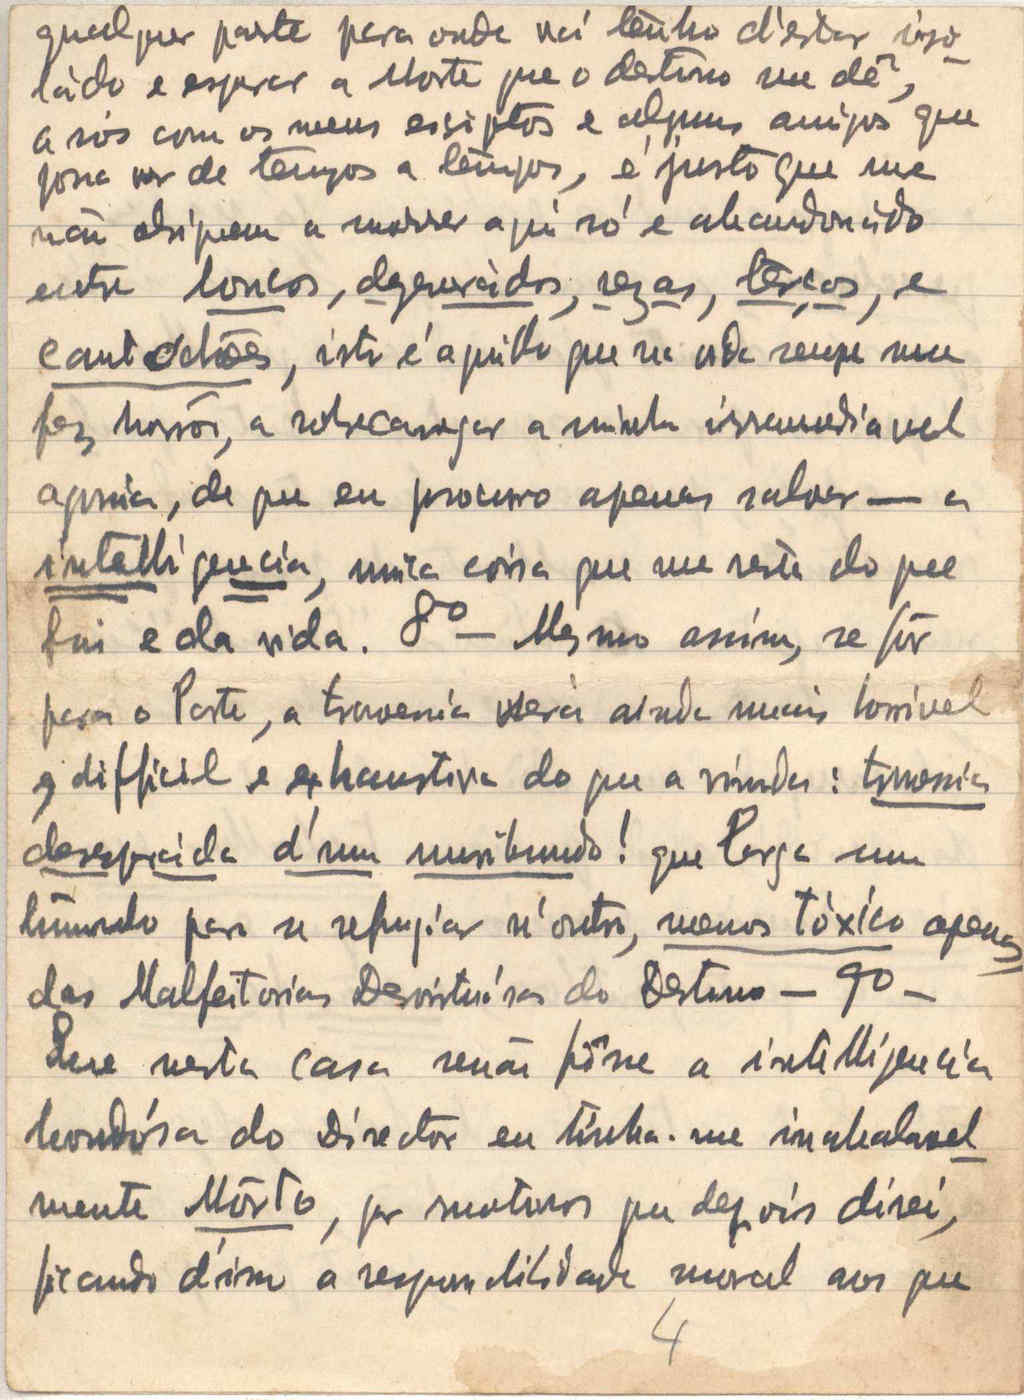 qualquer parte para onde vai tenho d'estar iso-
lado e esperar a Morte que o destino me dê,
a sós com os meus esciptos e alguns amigos que
possa ver de tempos a tempos, é justo que me
não obriguem a morrer aqui só e abandonado
entre loucos, degenerados, rezas, têrços, e
cantochões, isto é aquillo que na vida sempre me
fez horrôr, a sobrecarregar a minha irremediavel
agonia, de que eu procuro apenas salvar — a
intelligencia, unica coisa que me resta do que
fui e da vida. 8º — Mesmo assim, se fôr
para o Porto, a travessia será ainda mais horrivel
e difficil e exhaustiva do que a vinda: travessia
desesperada d'um moribundo! que larga um
tumulo para se refugiar n'outro, menos tóxico apenas
das Malfeitorias do Destino — 9º —
Que nesta casa senão fôsse a intelligencia
bondósa do Director eu tinha-me inabalavel
mente Môrto, por motivos que depois direi,
ficando d'isso a responsabilidade moral aos que
4